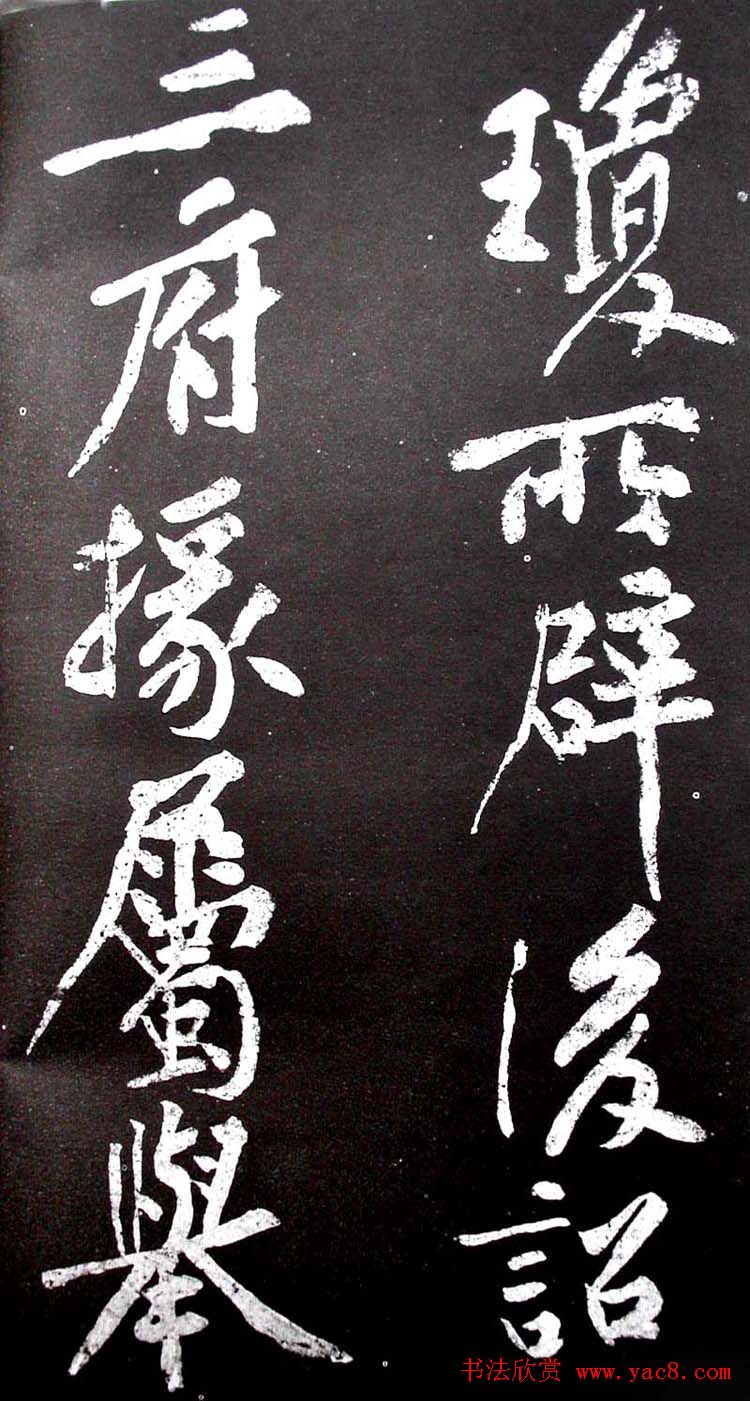 瓊所辟後詔
三府掾屬舉
书法欣赏 www.yac8.com